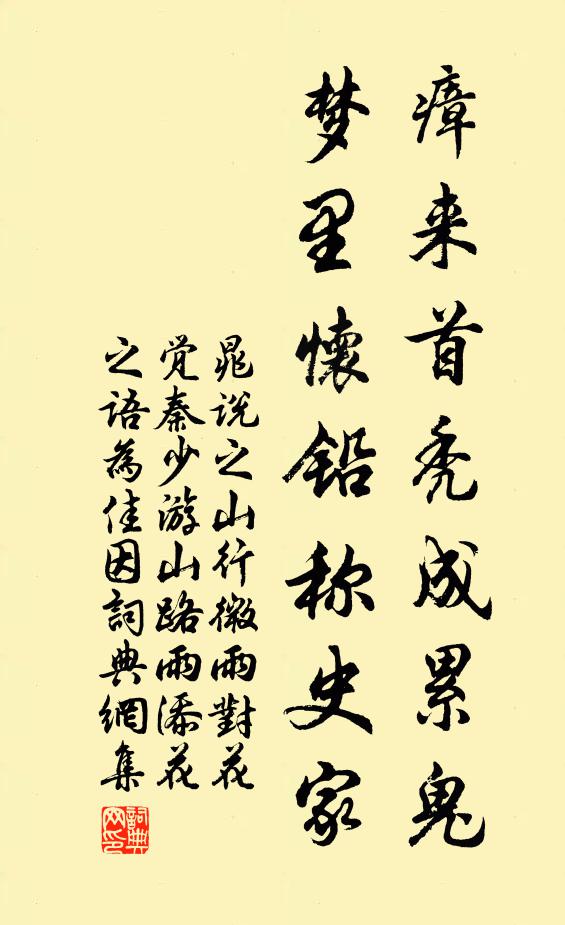 瘴来首秃成累鬼
梦里懷铅称史家
晁说之山行微雨對花
觉秦少游山路雨添花
之语為佳因詞典網集
詞典網印